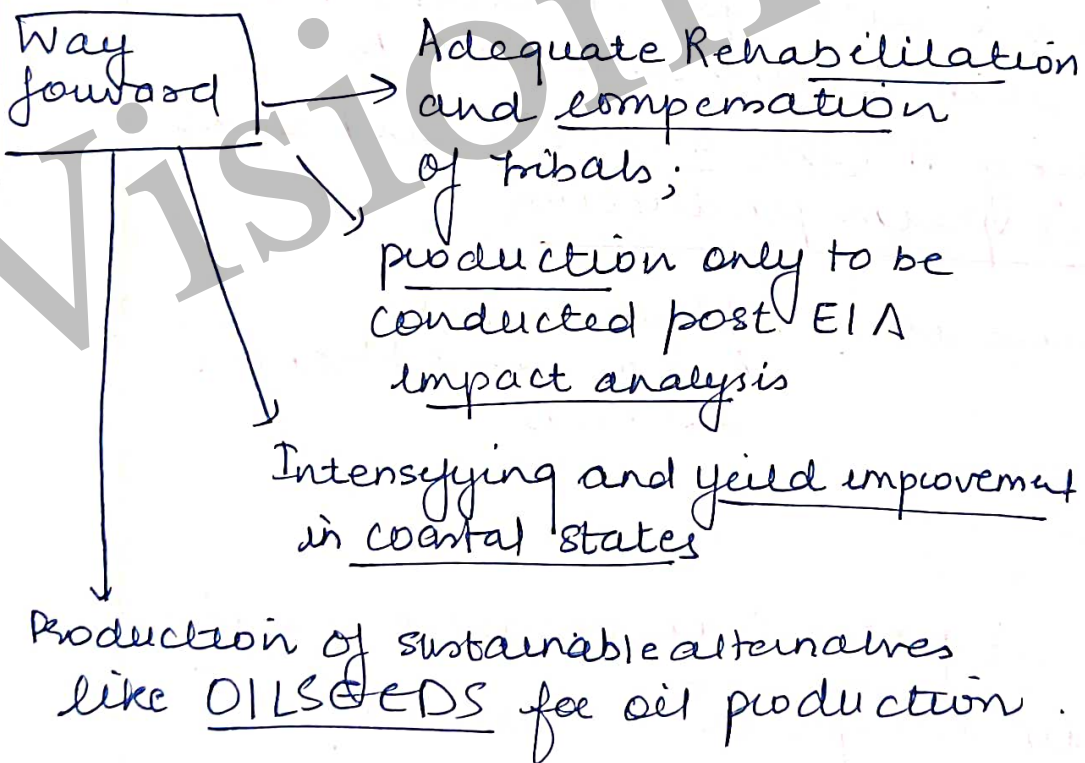 Way
forward
Adequate Rehabililation
and compensation
of tribals;
production only to be
conducted post EIA
impact analysis
Intensefying and yeild improvement
in coastal states
Production of sustainable alternatives
like OILSEEDS for oil production.
Vision